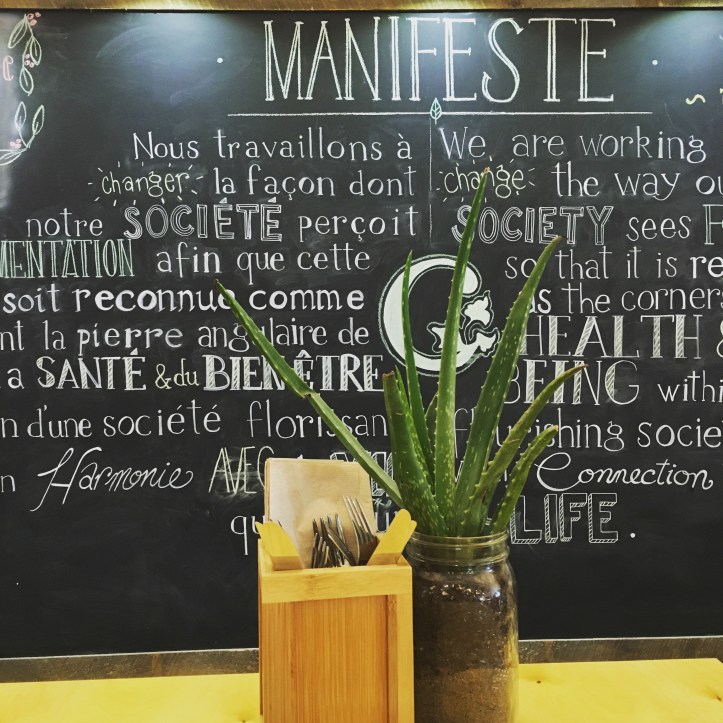 MANIFESTE
Nous travaillons à
changer la façon dont
notre SOCIÉTÉ perçoit
MENTATION afin que cette
soit reconnue comme
nt la pierre angulaire de
a SANTÉ & du BIEN ÊTRE
n d'une société florissan
n Harmonie AVEC
qu
We are working
change the way ou
SOCIETY sees F
so that it is re
as the corners
HEALTH &
BEING withi
flourishing socie
Connection
LIFE.